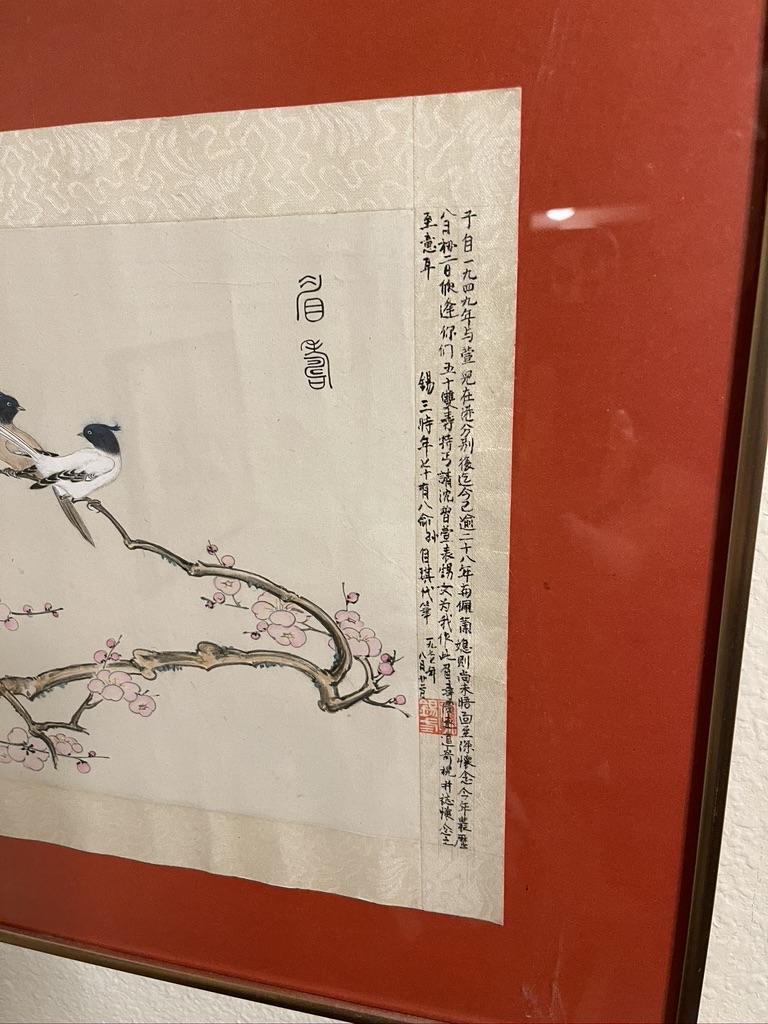 予自一九四九年与萱兒在港分别後迄今已逾二十八年而佩蘭媳則尚未晤面至深懷念今年農歷
八月初二日欣逢你们五十雙壽特丐請沈智萱表甥女为我作此眉壽圖遠道寄祝并誌懷念之
至意耳
錫三時年七十有八命孙自琪代筆
一九七七年
八月廿二日
眉壽